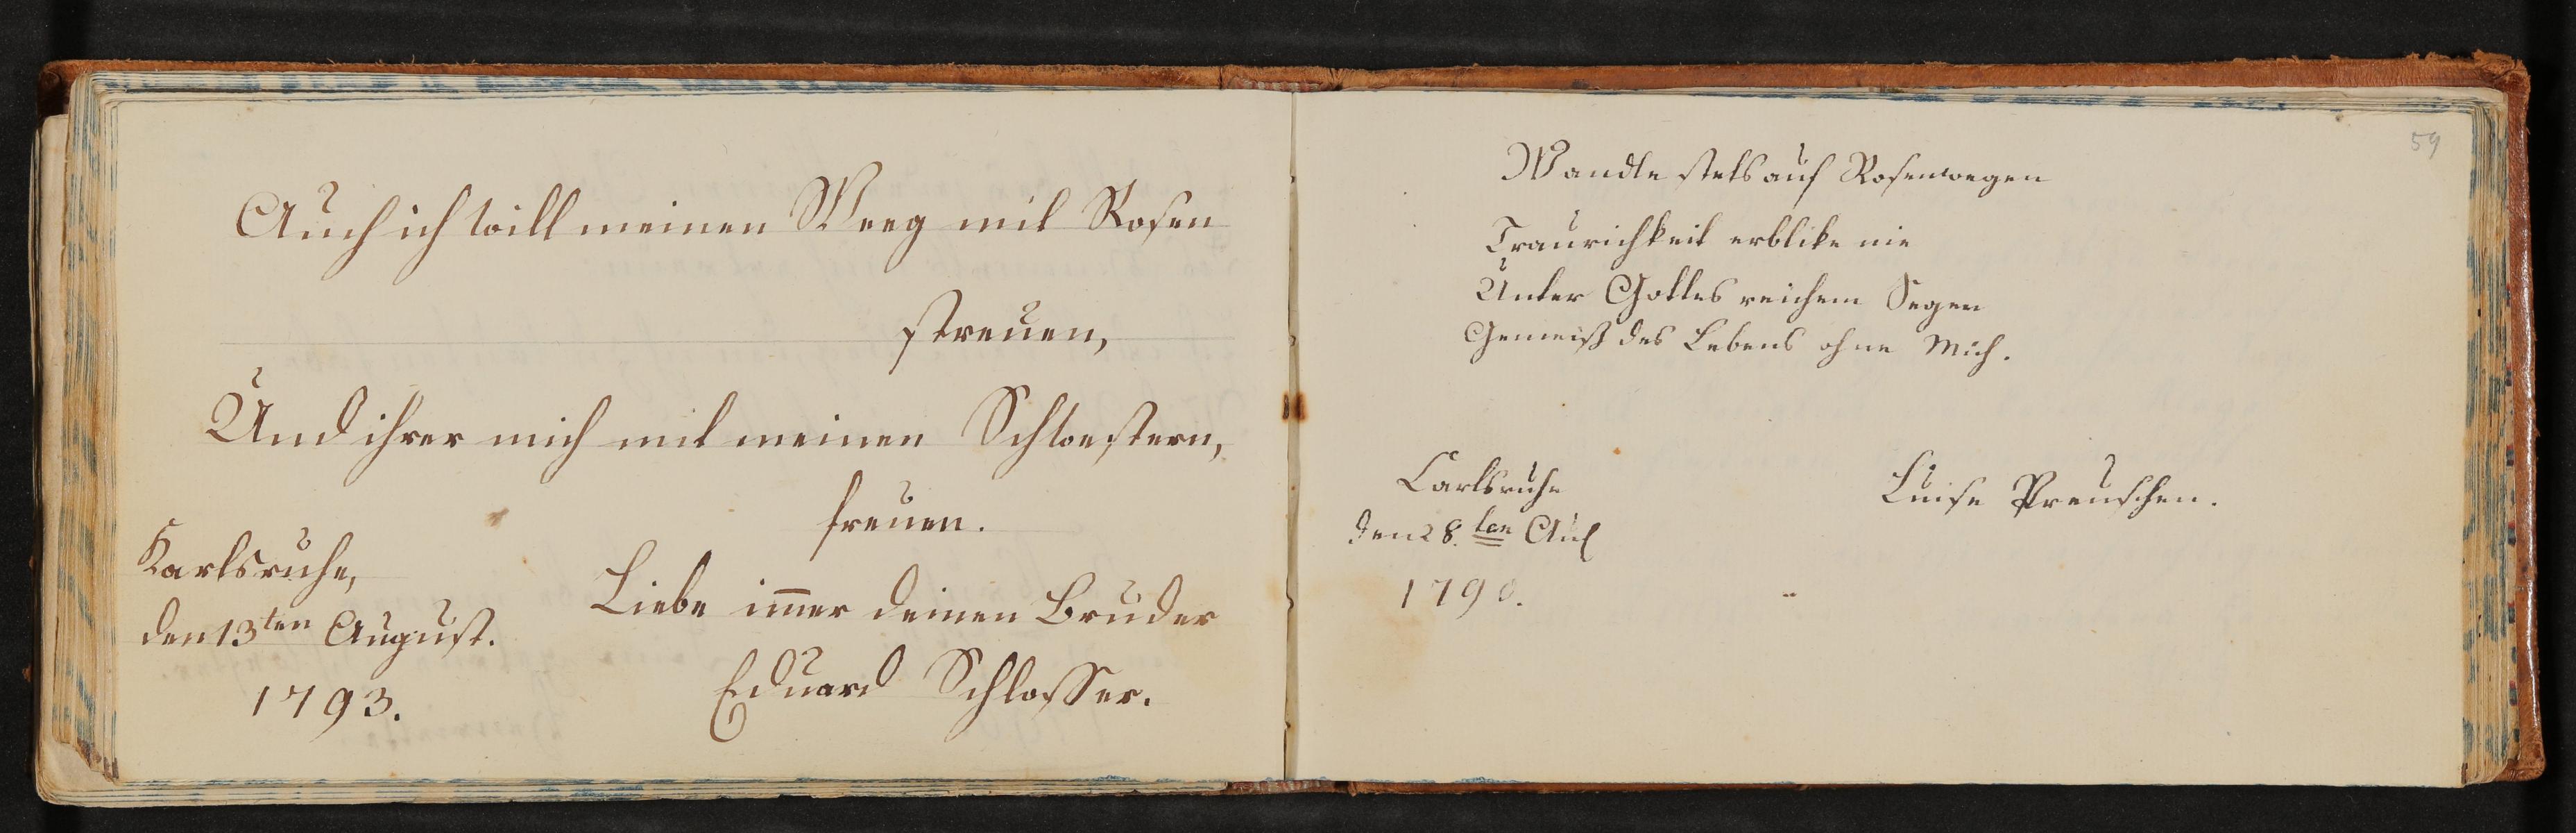 Auch ich will meinen Weeg mit Rosen
streuen,
Und ihrer mich mit meinen Schwestern,
freuen.
Karlsruhe,
den 13ten August.
1793.
Liebe im̅er deinen Bruder
Eduard Schlosser.
59
Wandle stets auf Rosenwegen
Traurichkeit erblike nie
Unter Gottes reichem Segen
Genniß des Lebens ohne Müh.
Carlsruhe
den 28.ten Au
1790.
Luise Preuschen.